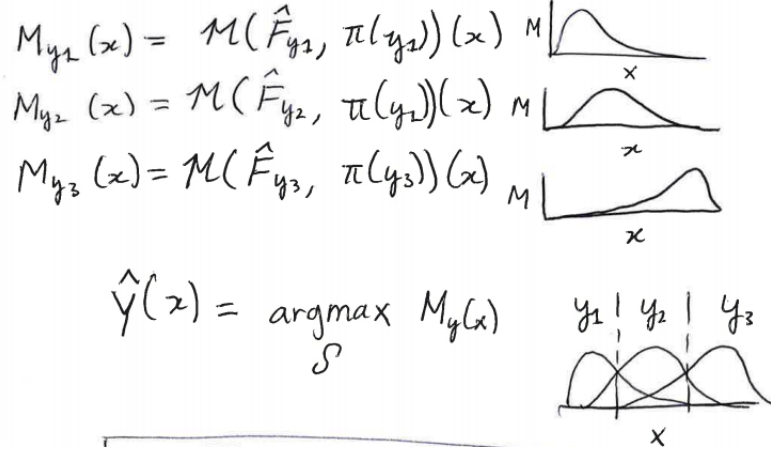 M_{y1}(x) = M(F̂_{y1}, π(y1))(x) M x
M_{y2}(x) = M(F̂_{y2}, π(y1))(x) M x
M_{y3}(x) = M(F̂_{y3}, π(y3))(x) M x
Ŷ(x) = argmax M_y(x)
S
y1 | y2 | y3
x